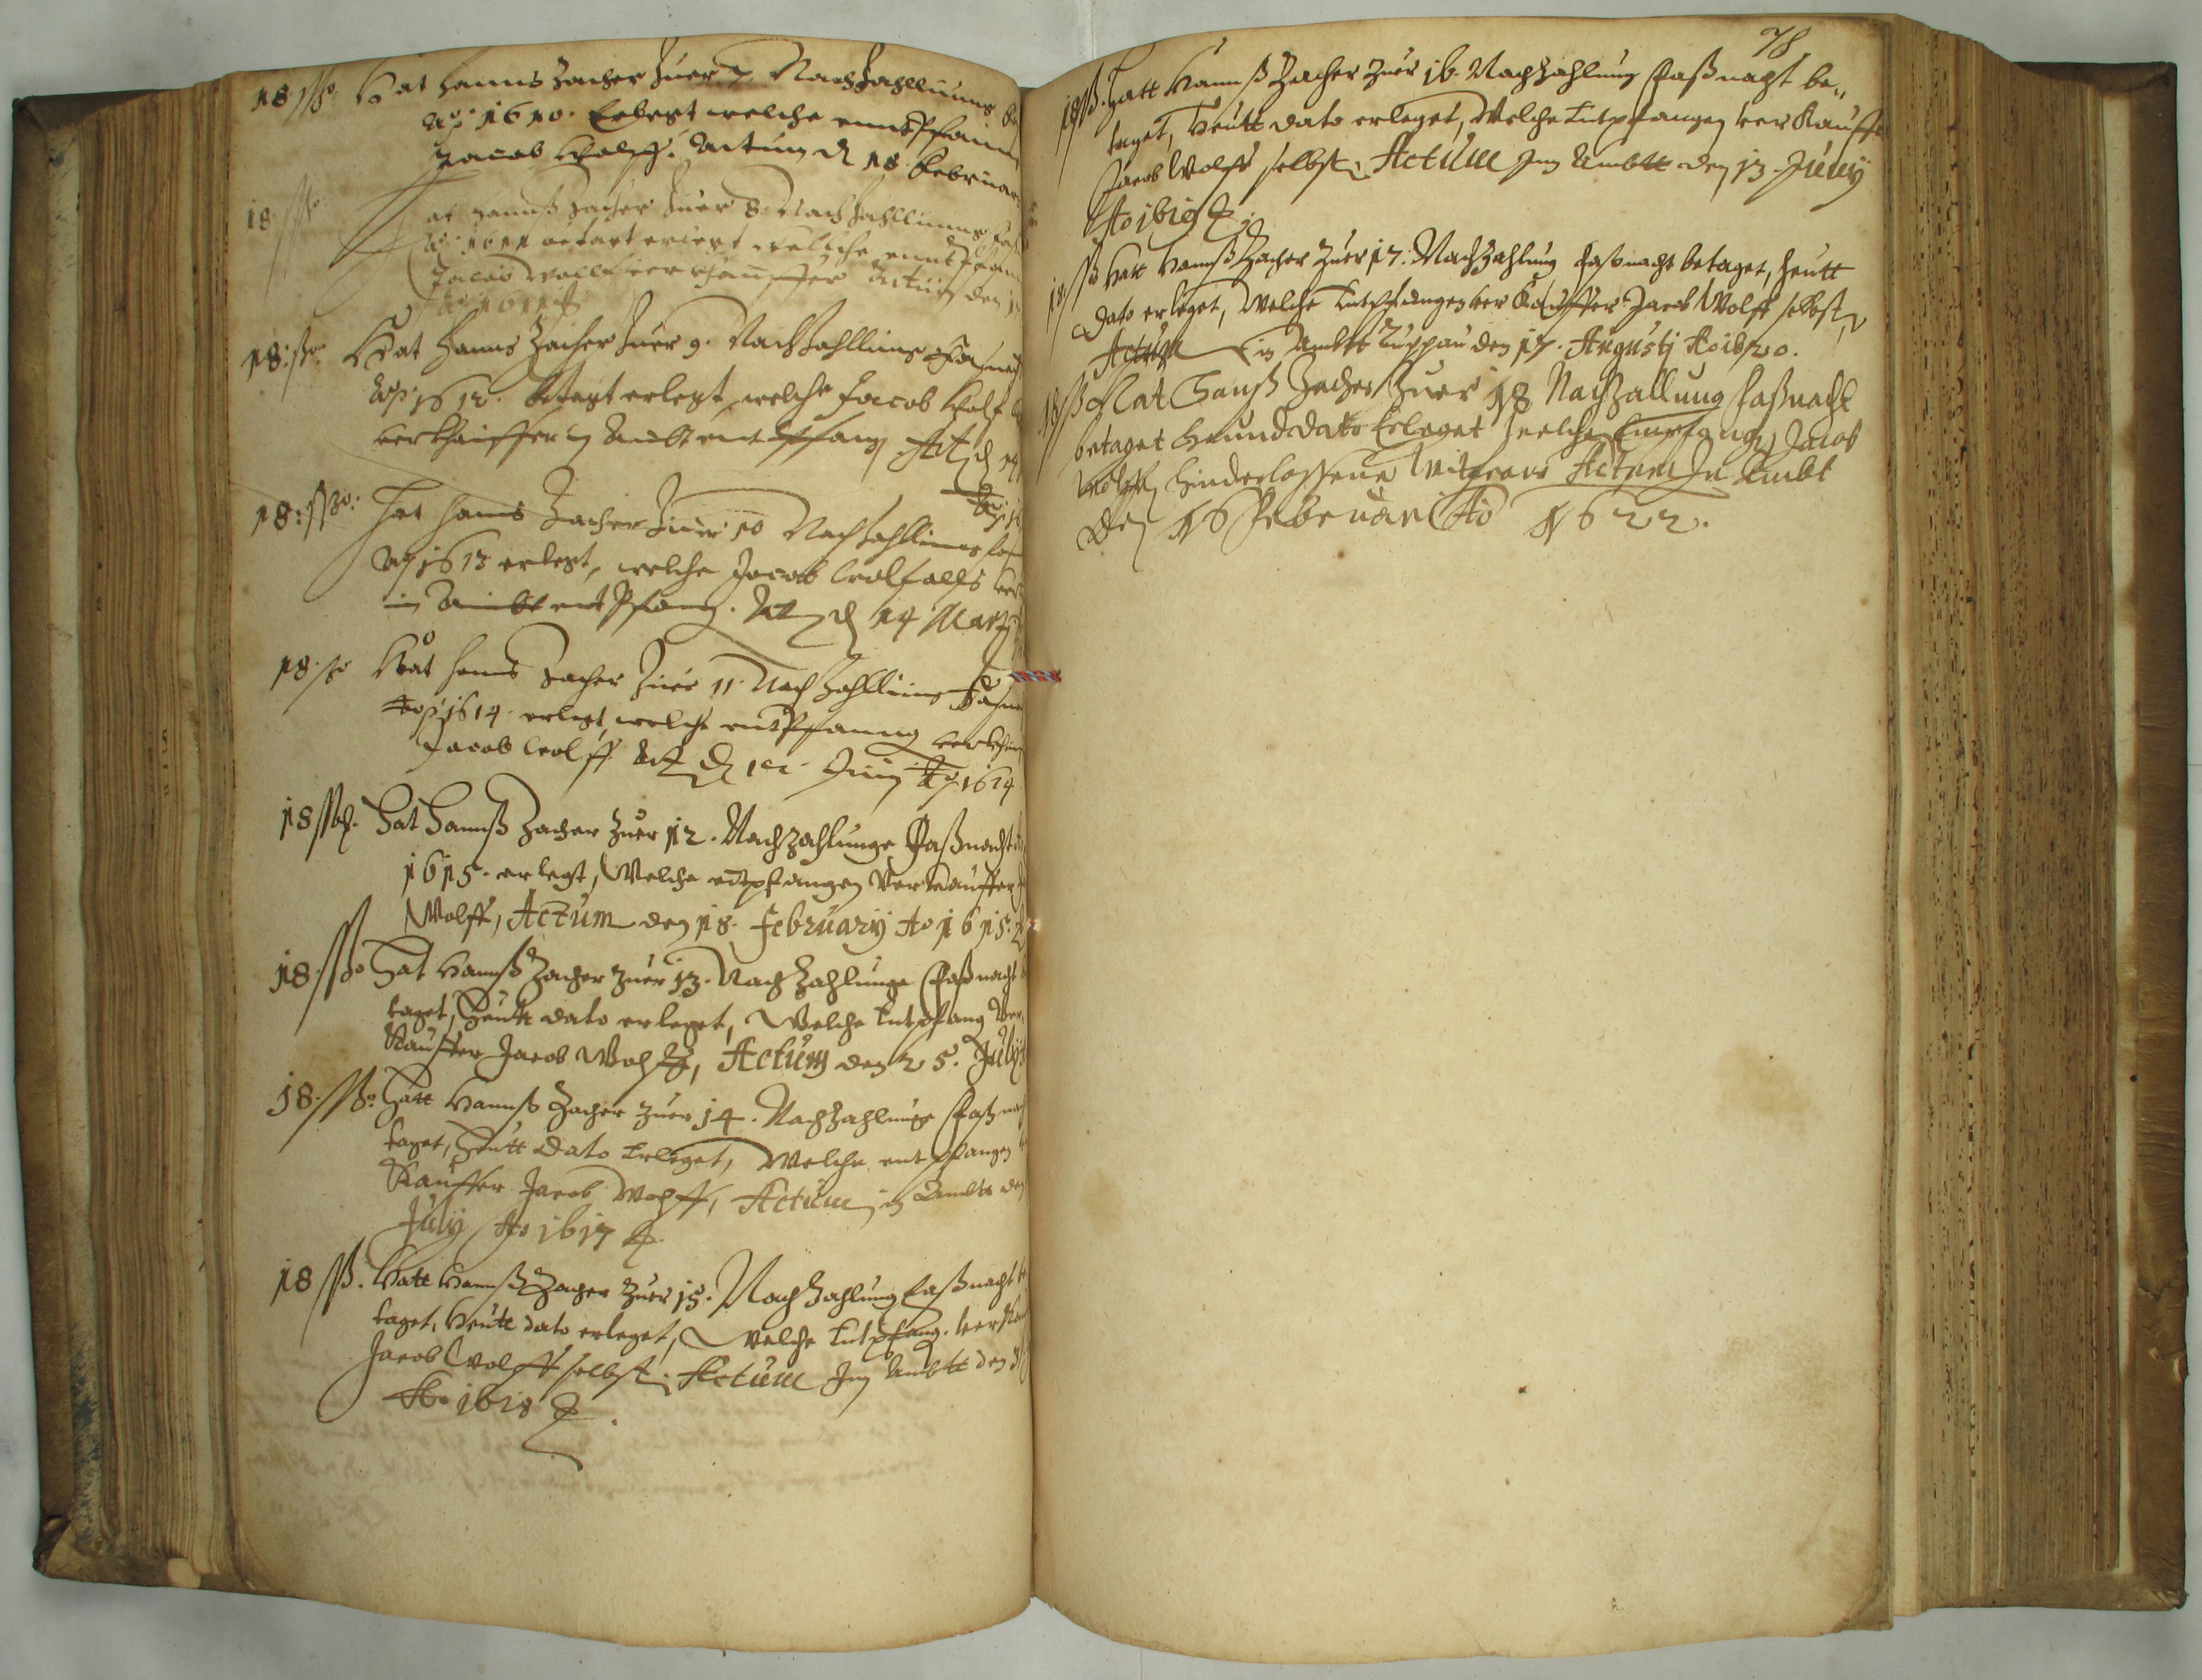 18 ßo. Hat Hanns Zacher Zuer 7. Nachzahllung
Ao 1610. Erlegt welche enntpfanng
Jacob Wolff. Actum d 18 Februar
18 ßo. at Hannß Zacher Zuer 8. Nachzahllung
Ao 1611 betagt erlegt welliche enntpfan
Jacob Wolff verkhauffer Actum den
Ao 1611
18: ßo Hat Hanns Zacher Zuer 9. Nachzahllung Fasnach
Ao 1612. betagt erlegt welche Jacob Wolf
verkhauffer in Ambt entpfang Act d 14
Ao 16
18: ßo: Hat Hanns Zacher Zuer 10 Nachzahllung
Ao 1613 erlegt, welche Jacob Wolf alls ver
in Ambt entpfang. Act d 14 Marty
18 ßo Hat Hanns Zacher Zuer 11. Nachzahllung Fasna
Ao 1614. erlegt welche entpfanng verkhau
Jacob Wolff Act d Juny Ao 1614
18 ßo. Hat Hannß Zacher Zuer 12. Nachzahlunge Faßnacht
1615. erlegt, Welche entpfangen Verkauffer
Wolff, Actum den 18. February Ao 1615.
18. ßo Hat Hannß Zacher Zuer 13. Nachzahlunge Faßnacht
taget, Heutt dato erleget, Welche Entpfang Ver
Kauffer Jacob Wolff, Actum den 25. July
18. ßo. Hatt Hannß Zacher Zuer 14. Nachzahlunge Faßnach
taget, Heutt Dato Erleget, Welche entpfangen
Kauffer Jacob Wolff, Actum in Ambts den
July Ao 1617
18 ß. Hatt Hannß Zacher Zuer 15. Nachzahlung Faßnacht
taget, Heutt dato erleget, Welche Entpfang. ver
Jacob Wolff selbst. Actum Im Ambtt den
Ao 1618
78
18 ß. Hatt Hannß Zacher Zuer 16. Nachzahlung Faßnacht be„
taget, Heutt dato erleget, Welche Entpfangen ver Kauffer
Jacob Wolff selbst. Actum Im Ambtt den 13. Juny
Ao 1619
18 ß Hatt Hannß Zacher Zuer 17. Nachzahlung Faßnacht betaget, Heutt
Dato erleget, Welche Entpfangen ver Kauffer Jacob Wolff selbst
Actum in Ambtt Luppau den 17. Augusti Ao 1620.
18 ß Hat Hanß Zacher Zuer 18 Nachzallung Faßnacht
betaget Heund dato Erleget welche Empfangen Jacob
Wolffen hinderlassene Witfraw Actum In Ambt
Den 16 Februari Ao 1622.